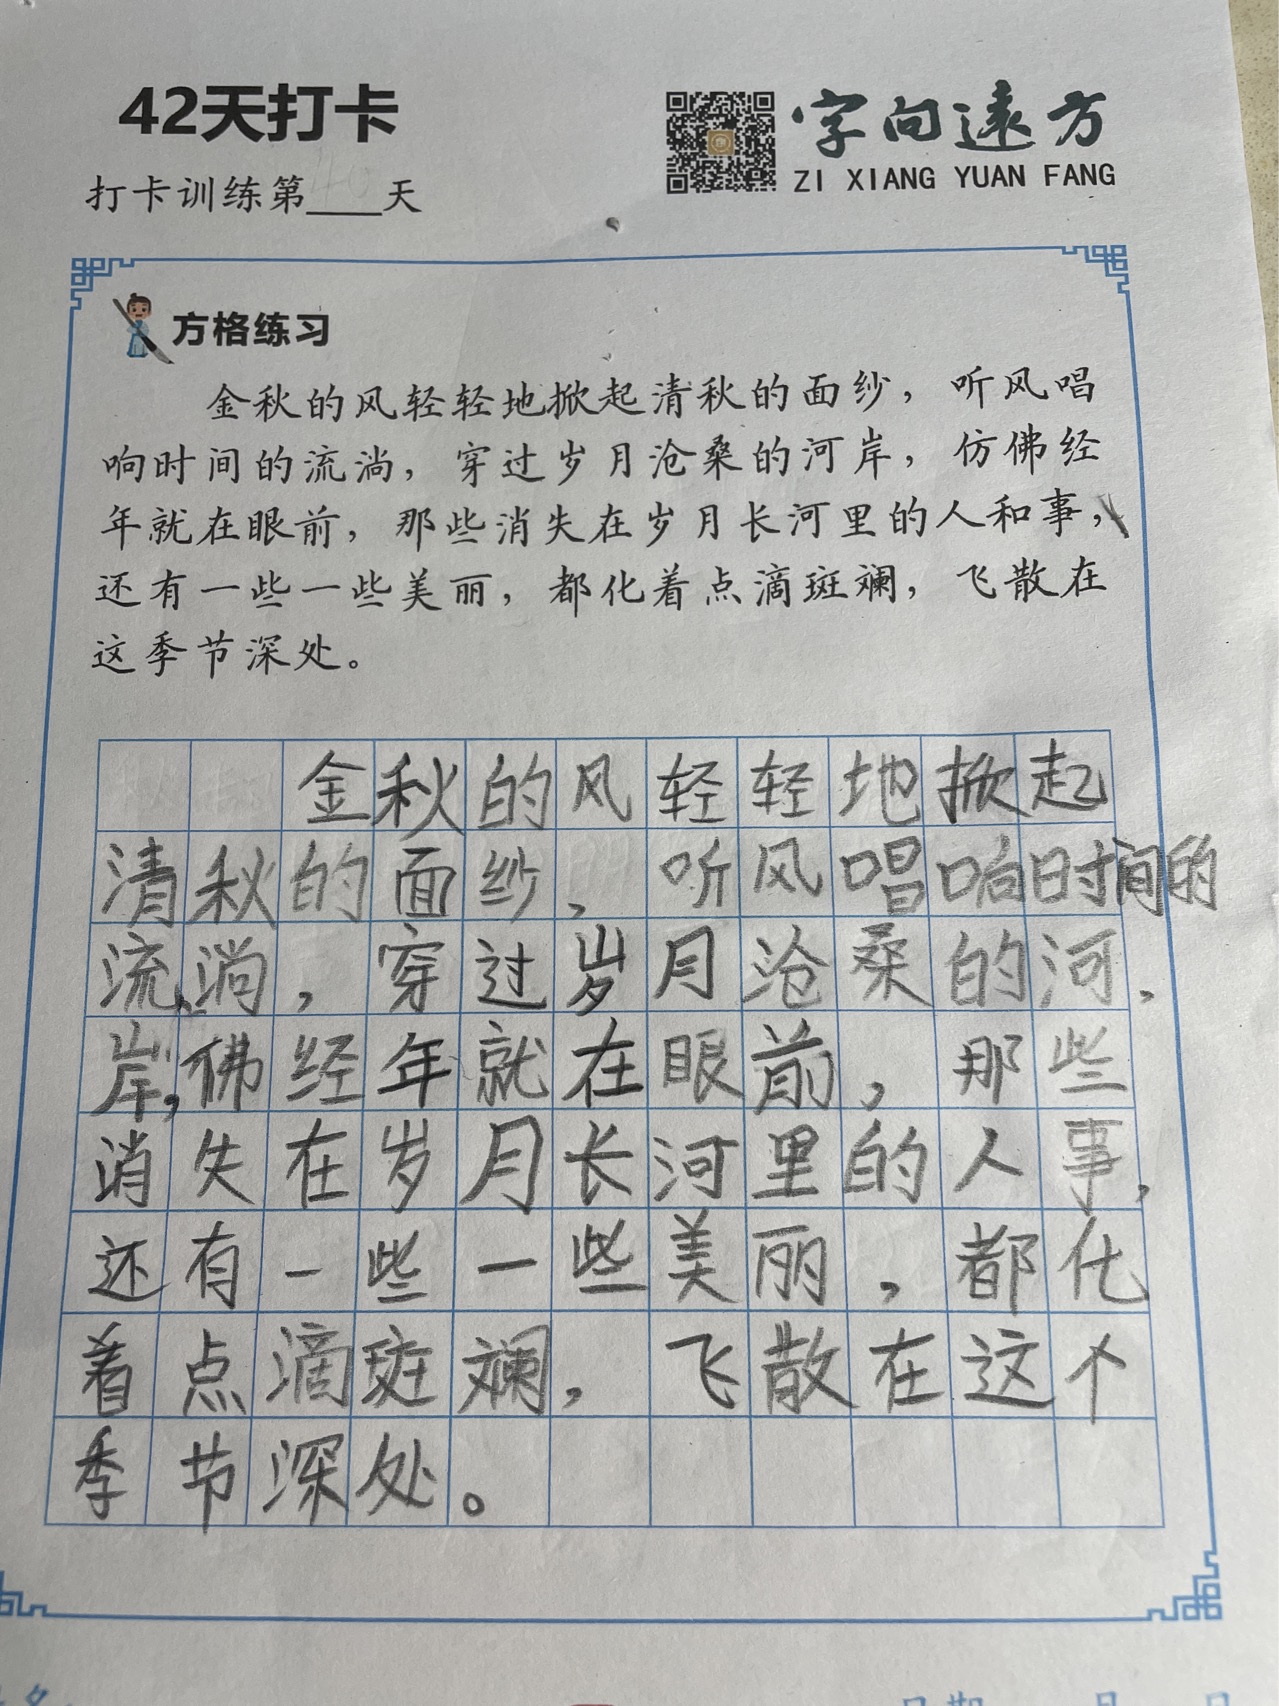 42天打卡
字向遠方
ZI XIANG YUAN FANG
打卡训练第40天
方格练习
金秋的风轻轻地掀起清秋的面纱，听风唱
响时间的流淌，穿过岁月沧桑的河岸，仿佛经
年就在眼前，那些消失在岁月长河里的人和事，
还有一些一些美丽，都化着点滴斑斓，飞散在
这季节深处。
金秋的风轻轻地掀起
清秋的面纱，听风唱响时间的
流淌，穿过岁月沧桑的河，
岸，佛经年就在眼前，那些
消失在岁月长河里的人事，
还有一些一些美丽，都化
着点滴斑斓，飞散在这个
季节深处。